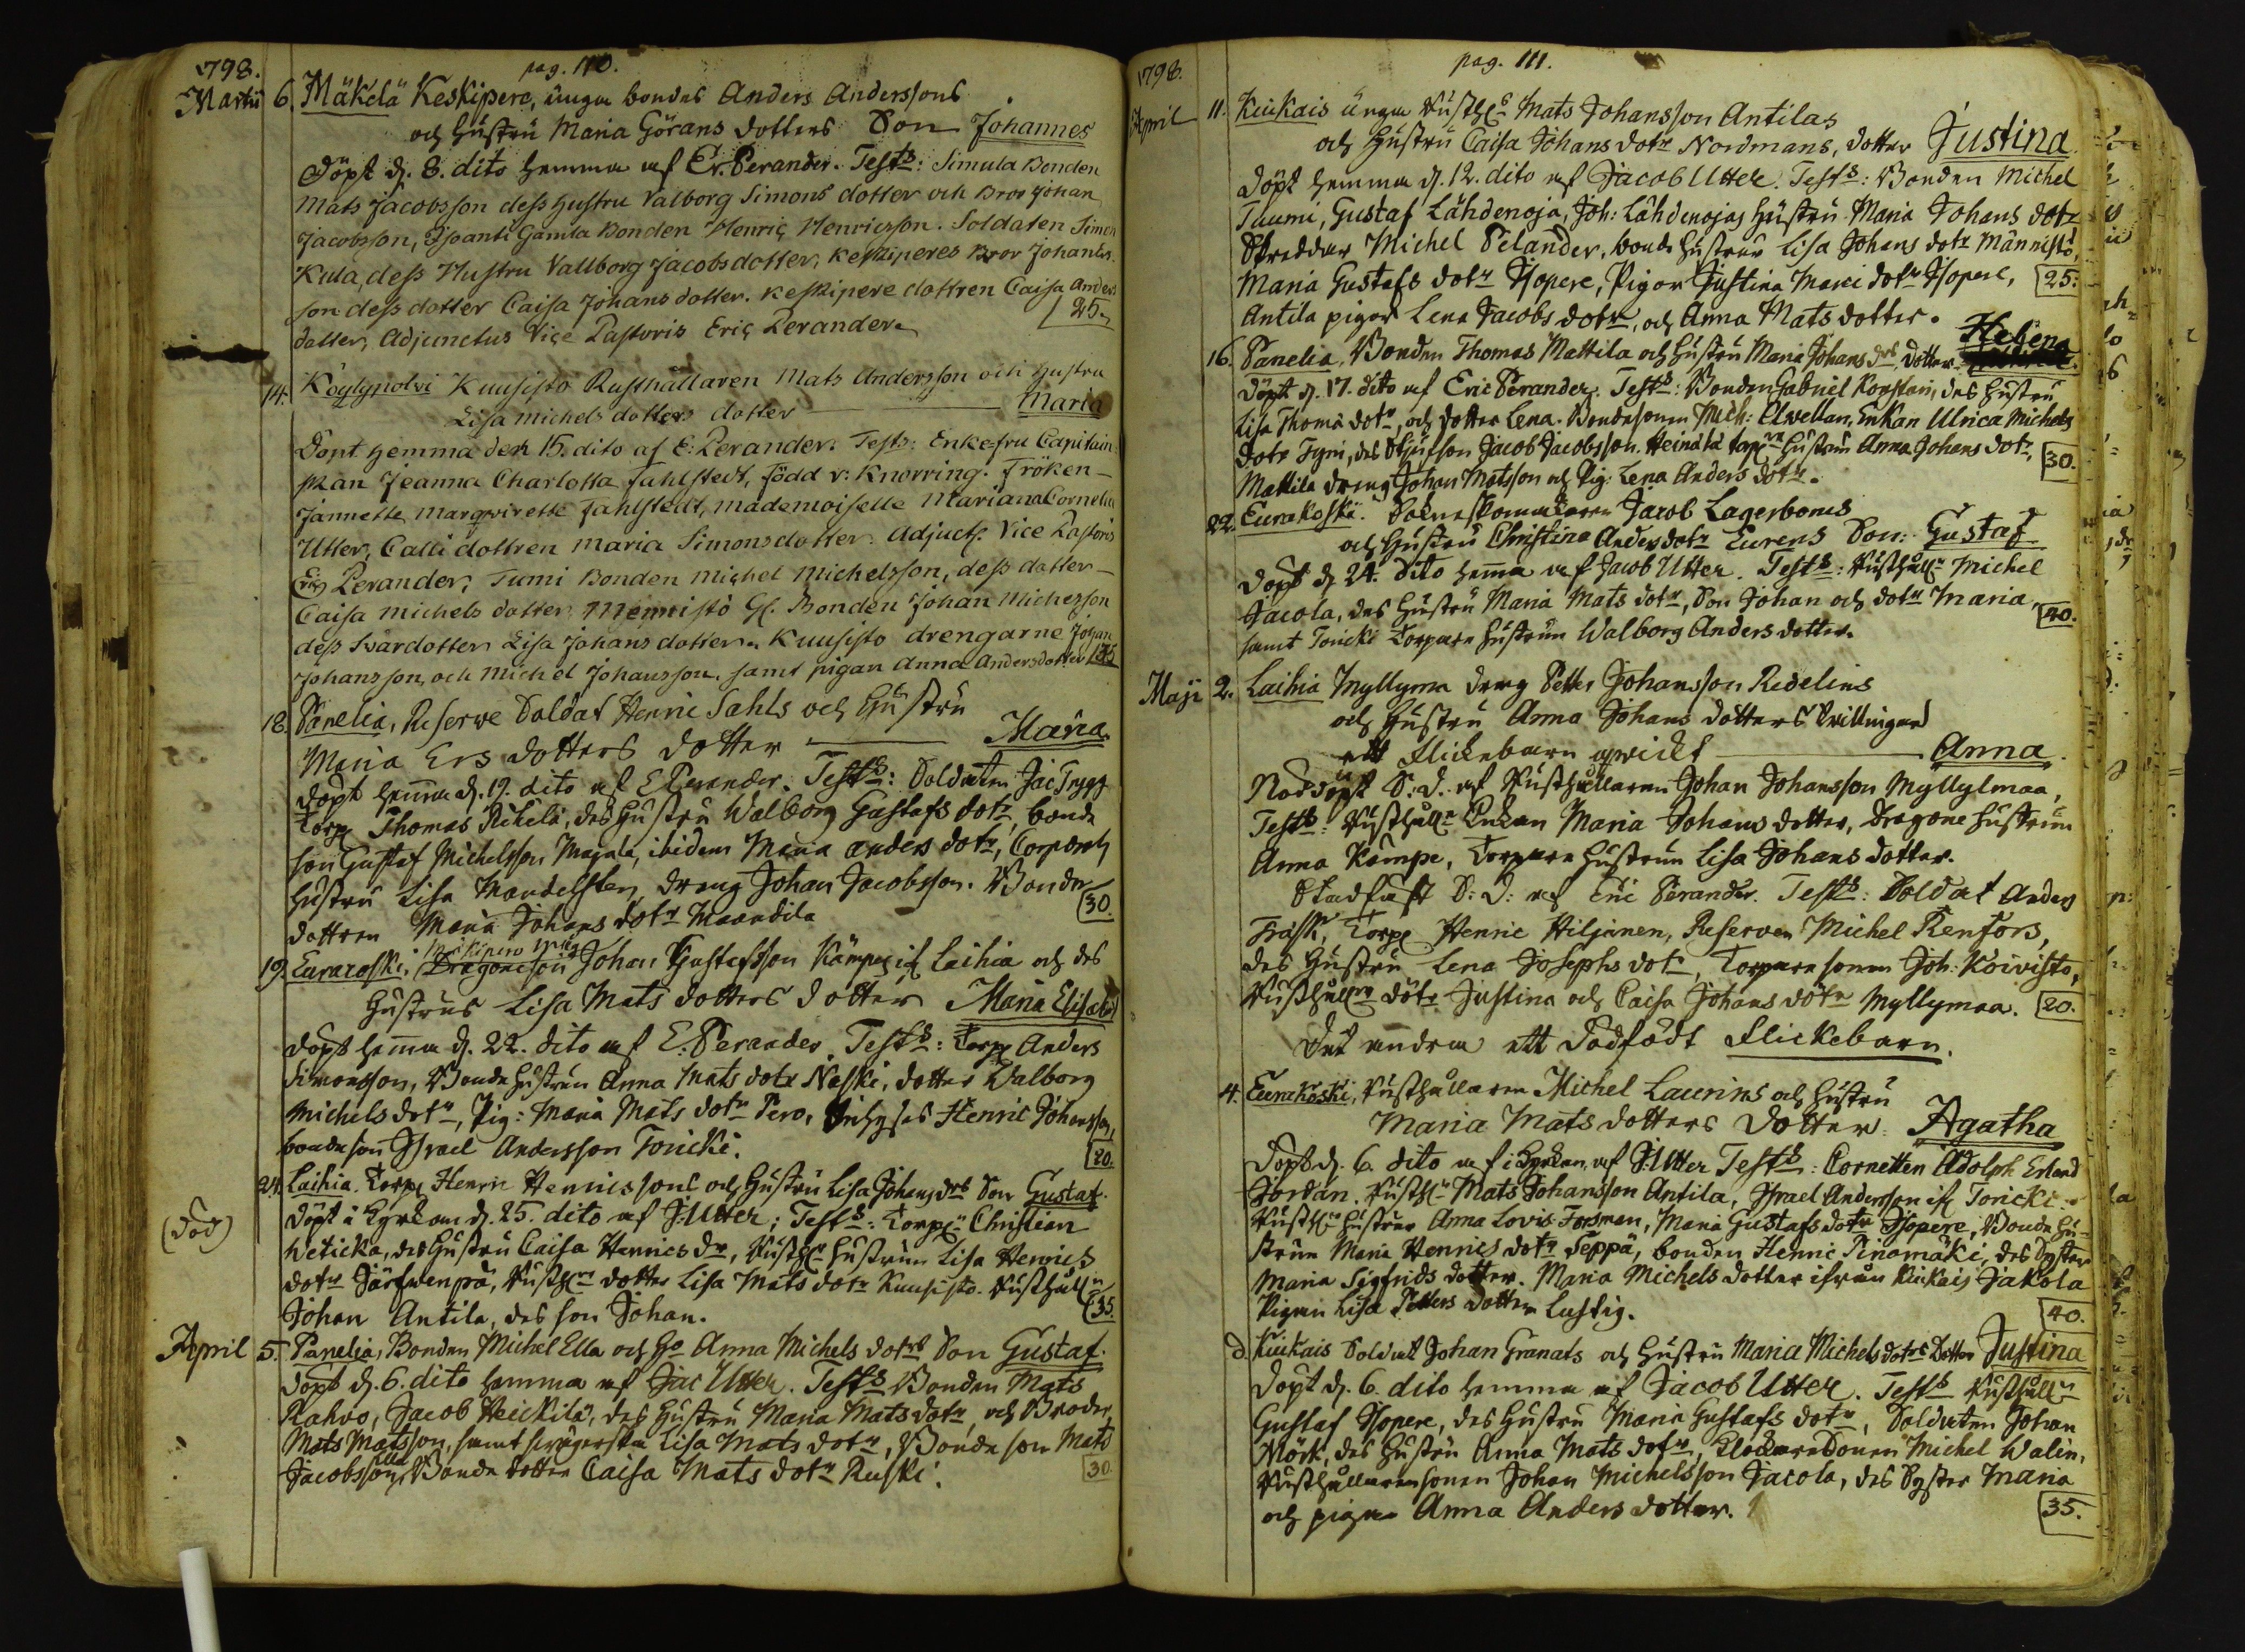 1798.
pag. 110.
Martii 6. Mäkelä Keskipere, unga bondes Anders Anderssons
och hustru Maria Görans dotters Son Johannes
döpt d. 8. dito hemma af Er. Perander. Tests: Simula Bonden
Mats Jacobsson dess hustru Valborg Simons dotter och Bror Johan
Jacobsson, Isoanti Gamla Bonden Henric Henricsson. Soldaten Simon
Kula, dess Hustru Vallborg Jacobs dotter, Keskiperes Bror Johan Anders
son dess dotter Caisa Johans dotter. Keskipere dottren Caisa Anders
dotter, Adjunctus Vice Pastoris Eric Perander.
25.
14. Köylypolvi Kuusisto Rusthållaren Mats Andersson och hustru
Lisa Michels dotters dotter Maria
Döpt hemma den 15. dito af E: Perander. Tests: Enkefru Capitain
skan Jeanna Charlotta Fahlstedt, född v: Knorring. Fröken
Jannette Margvirette Fahlstedt, mademoiselle Mariana Cornelia
Utter, Calli dottren Maria Simons dotter. Adjuct. Vice Pastoris
Eric Perander, Tumi Bonden Michel Michelsson, dess dotter
Caisa Michels dotter Mennistö Gl. Bonden Johan Michesson
dess Svärdotter Lisa Johans dotter. Kuusisto drengarne Johan
Johansson, och Michel Johansson, samt pigan Anna Andersdotter 35
18. Panelia, Reserve Soldat Henric Sahls och Hustru
Maria Ers dotters dotter Maria.
döpt hemma d. 19. dito af E Perander. Tests: Soldaten Jac Trygg
Torp Thomas Rikelä, des Hustru Walborg Gustafs dotr, bonde
son Gustaf Michelsson Majala, ibidem Maria Anders dotr, Corporals
hustru Lisa Mandelsten, dreng Johan Jacobsson. Bonde
dottren Maria Johans dotr Maandila
30.
19. Euraxoski, Dragoneson Johan Gustafsson Kämpe if Laihia och des
Hustrus Lisa Mats dotters dotter Maria Elisabet
döpt hemma d. 22. dito af E: Perander. Tests: Torp Anders
Simonsson, Bonde hustrun Anna Mats dotr Naski, dotter Walborg
Michels dotr, Pig: Maria Mats dotr Pero, Inhyses Henric Johansson,
bondeson Israel Andersson Toricki.
20.
24. Laihia. Torp Henric Henricssons och Hustru Lisa Johans drs Son Gustaf.
(död) döpt i Kyrkan d. 25. dito af J: Utter; Tests: Torp Christian
Weticka, des Hustru Caisa Henrics dr, Rusth hustrun Lisa Henrics
dotr Järfwenpä, Rusth dotter Lisa Mats dotr Kuusisto. Rusthåll
Johan Antila, des son Johan.
35
April 5. Panelia, Bonden Michel Ella och Ho Anna Michels dotrs Son Gustaf.
döpt d. 6. dito hemma af Jac Utter. Tests Bonden Mats
Rahvo, Jacob Heickilä, des Hustru Maria Mats dotr, och Broder
Mats Matsson, samt swägerska Lisa Mats dotr, Bonde son Mats
Jacobsson Ella, Bonde dotter Caisa Mats dotr Ruski.
30.
1798.
pag. 111.
April 11. Kiukais unga Rusth Mats Johansson Antilas
och Hustru Caisa Johans dotr Nordmans, dotter Justina.
döpt hemma d. 12. dito af Jacob Utter. Tests: Bonden Michel
Tuumi, Gustaf Lähdenoja, Joh: Lähdenojas hustru Maria Johans dotr
Skreddar Michel Pelander, bonde hustrun Lisa Johans dotr Männistö,
Maria Gustafs dotr Isopere, Pigor Justina Marci dotr Isopere,
25.
Antila pigor Lena Jacobs dotr, och Anna Mats dotter.
16. Panelia, Bonden Thomas Mattila och Hustru Maria Johans drs dotter Helena
döpt d. 17. dito af Eric Perander. Tests: Bonden Gabriel Konstari, des Hustru
Lisa Thomæ dotr, och dotter Lena. Bondesonen Mich: Elwellan, Enkan Ulrica Michels
dotr Tyni, des Stjufson Jacob Jacobsson. Heinälä Torp hustrun Anna Johans dotr,
30.
Mattila dreng Johan Matsson och Pig: Lena Anders dotr.
22. Eurakoski. Sokneskomakaren Jacob Lagerboms
och Hustru Christina Anders dotr Eurens Son: Gustaf
döpt d. 24. dito hemma af Jacob Utter. Tests: Rusthåll Michel
Jacola, des Hustru Maria Mats dotr, Son Johan och dotr Maria,
40.
samt Toricki Torpare hustrun Walborg Anders dotter.
Maji 2. Laihia Myllymaa dreng Petter Johansson Redelins
och Hustru Anna Johans dotters Twillingar
ett Flickebarn qwickt Anna.
Nöddöpt S: D. af Rusthållaren Johan Johansson Myllylmaa,
Tests: Rusthåll Enkan Maria Johans dotter, Dragone hustrun
Anna Kämpe, Torpare hustrun Lisa Johans dotter.
Stadfäst S: D: af Eric Perander. Tests: Soldat Anders
Frisk, Torp Henric Hiljanen, Reserven Michel Renfors,
des Hustru Lena Josephs dotr, Torpare sonen Joh: Koivisto,
Rusthåll dötr Justina och Caisa Johans dötr Myllymaa. 20.
Det andra ett Dödfödt Flickebarn.
4. Eurakoski, Rusthållaren Michel Laurins och Hustru
Maria Mats dotters Dotter Agatha
döpt d. 6. dito af i Kyrkan af J: Utter Tests: Cornetten Adolph Erland
Jordan. Rusth Mats Johansson Antila, Israel Andersson if Toricki.
Rusth hustrur Anna Lovis Forsman, Maria Gustafs dotr Isopere, Bonde hu-
strun Maria Henrics dotr Seppä, bonden Henric Pinomäki, des Syster
Maria Sigfrids dotter. Maria Michels dotter ifrån Kiukais Jakola
Pigan Lisa Petters dotter Lustig.
40.
d. Kiukais Soldat Johan Granats och Hustru Maria Michels dotrs Dotter Justina
döpt d. 6. dito hemma af Jacob Utter. Tests Rusthåll
Gustaf Isopere, des Hustru Maria Gustafs dotr, Soldaten Johan
Mörk, des Hustru Anna Mats dotr, Klockare Sonen Michel Walin,
Rusthållaresonen Johan Michelsson Jacola, des Syster Maria
och pigan Anna Anders dotter.
35.